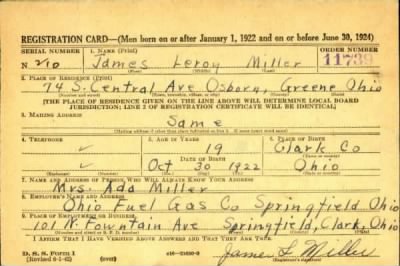 REGISTRATION CARD—(Men born on or after January 1, 1922 and on or before June 30, 1924)
SERIAL NUMBER 1. NAME (Print) ORDER NUMBER
N 210 James Leroy Miller 11739
(First) (Middle) (Last)
2. PLACE OF RESIDENCE (Print)
74 S. Central Ave Osborn, Greene Ohio
(Number and street) (Town, township, village, or city) (County) (State)
[THE PLACE OF RESIDENCE GIVEN ON THE LINE ABOVE WILL DETERMINE LOCAL BOARD
JURISDICTION; LINE 2 OF REGISTRATION CERTIFICATE WILL BE IDENTICAL]
3. MAILING ADDRESS
Same
[Mailing address if other than place indicated on line 2. If same insert word same]
4. TELEPHONE 5. AGE IN YEARS 6. PLACE OF BIRTH
✓ 19 Clark Co
DATE OF BIRTH
✓ Oct 30 1922 Ohio
7. NAME AND ADDRESS OF PERSON WHO WILL ALWAYS KNOW YOUR ADDRESS
Mrs. Ada Miller
8. EMPLOYER'S NAME AND ADDRESS
Ohio Fuel Gas Co Springfield Ohio
9. PLACE OF EMPLOYMENT OR BUSINESS
101 N. Fountain Ave Springfield, Clark, Ohio
I AFFIRM THAT I HAVE VERIFIED ABOVE ANSWERS AND THAT THEY ARE TRUE.
D. S. S. Form 1
(Revised 6-1-42) James L Miller